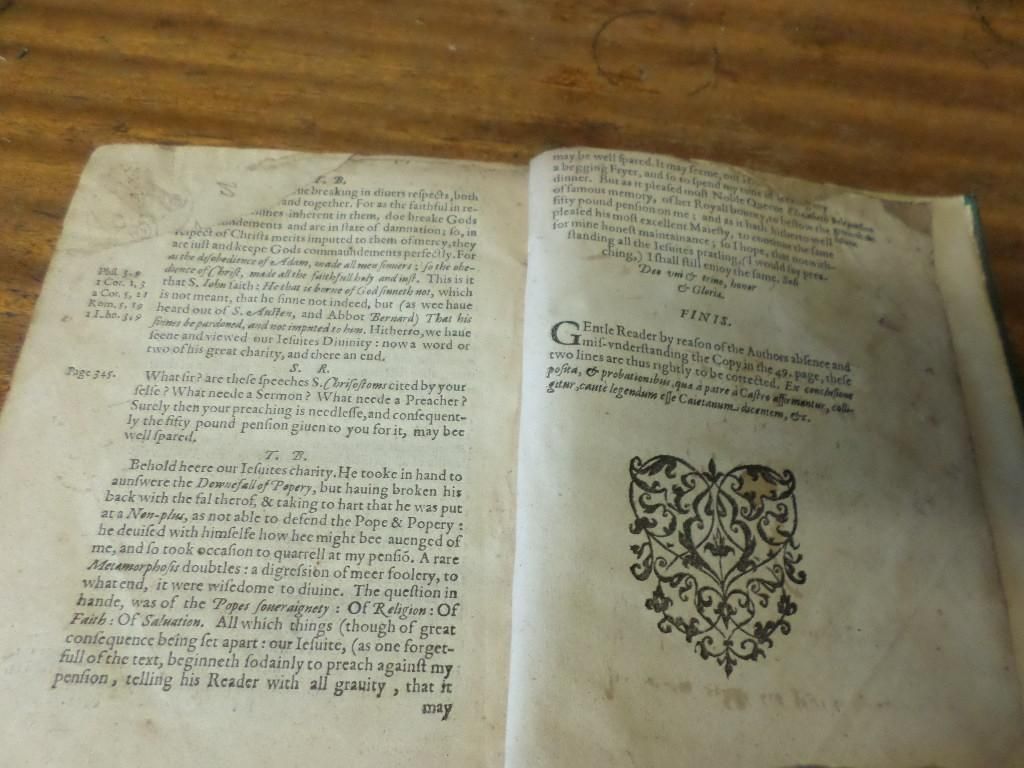 T. B.
the breaking in diuers respects, both
and together. For as the faithful in re-
inherent in them, doe breake Gods
and are in state of damnation; so, in
respect of Christs merits imputed to them of mercy, they
are iust and keepe Gods commaundements perfectly. For
as the disobedience of Adam, made all men sinners; so the obe-
dience of Christ, made all the faithfull holy and iust. This is it
that S. Iohn saith: He that is borne of God sinneth not, which
is not meant, that he sinne not indeed, but (as wee haue
heard out of S. Austen, and Abbot Bernard) That his
sinnes be pardoned, and not imputed to him. Hitherto, we haue
seene and viewed our Iesuites Diuinity: now a word or
two of his great charity, and there an end.
Phil. 3.9
1 Cor. 1, 3
2 Cor. 5, 21
Rom. 5, 19
1 Iho. 3, 9
S. R.
Page 345.
What sir? are these speeches S. Chrisostoms cited by your
selfe? What neede a Sermon? What neede a Preacher?
Surely then your preaching is needlesse, and consequent-
ly the fifty pound pension giuen to you for it, may bee
well spared.
T. B.
Behold heere our Iesuites charity. He tooke in hand to
aunswere the Downefall of Popery, but hauing broken his
back with the fal therof, & taking to hart that he was put
at a Non-plus, as not able to defend the Pope & Popery:
he deuised with himselfe how hee might bee auenged of
me, and so took occasion to quarrell at my pensiō. A rare
Metamorphosis doubtles: a digression of meer foolery, to
what end, it were wisedome to diuine. The question in
hande, was of the Popes soueraignety: Of Religion: Of
Faith: Of Saluation. All which things (though of great
consequence being set apart: our Iesuite, (as one forget-
full of the text, beginneth sodainly to preach against my
pension, telling his Reader with all grauity, that it
may
may be well spared. It may seeme,
a begging Fryer, and so to spend my time
dinner. But as it pleased most Noble Queene Elizabeth
of famous memory, of her Royall bounty, to bestow the
fifty pound pension on me; and as it hath hitherto well
pleased his most excellent Maiesty, to continue the same
for mine honest maintainance; so I hope, that notwith-
standing all the Iesuites pratling, (I would say prea-
ching,) I shall still enioy the same. Soli
Deo vni & trino, honor
& Gloria.
FINIS.
GEntle Reader by reason of the Authors absence and
mis-vnderstanding the Copy in the 49. page, these
two lines are thus rightly to be corrected. Ex conclusione
posita, & probationibus, quæ à patre à Castro affirmantur, colli-
gitur, cautè legendum esse Caietanum dicentem, &c.